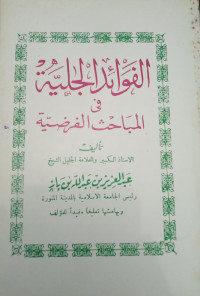 الفوائد الجلية
في
المباحث الفرضية
تأليف
الأستاذ الكبير والعلامة الجليل الشيخ
عبد العزيز بن عبد الله بن باز
رئيس الجامعة الاسلامية بالمدينة المنورة
وبهامشها تعليقا مفيدا للمؤلف